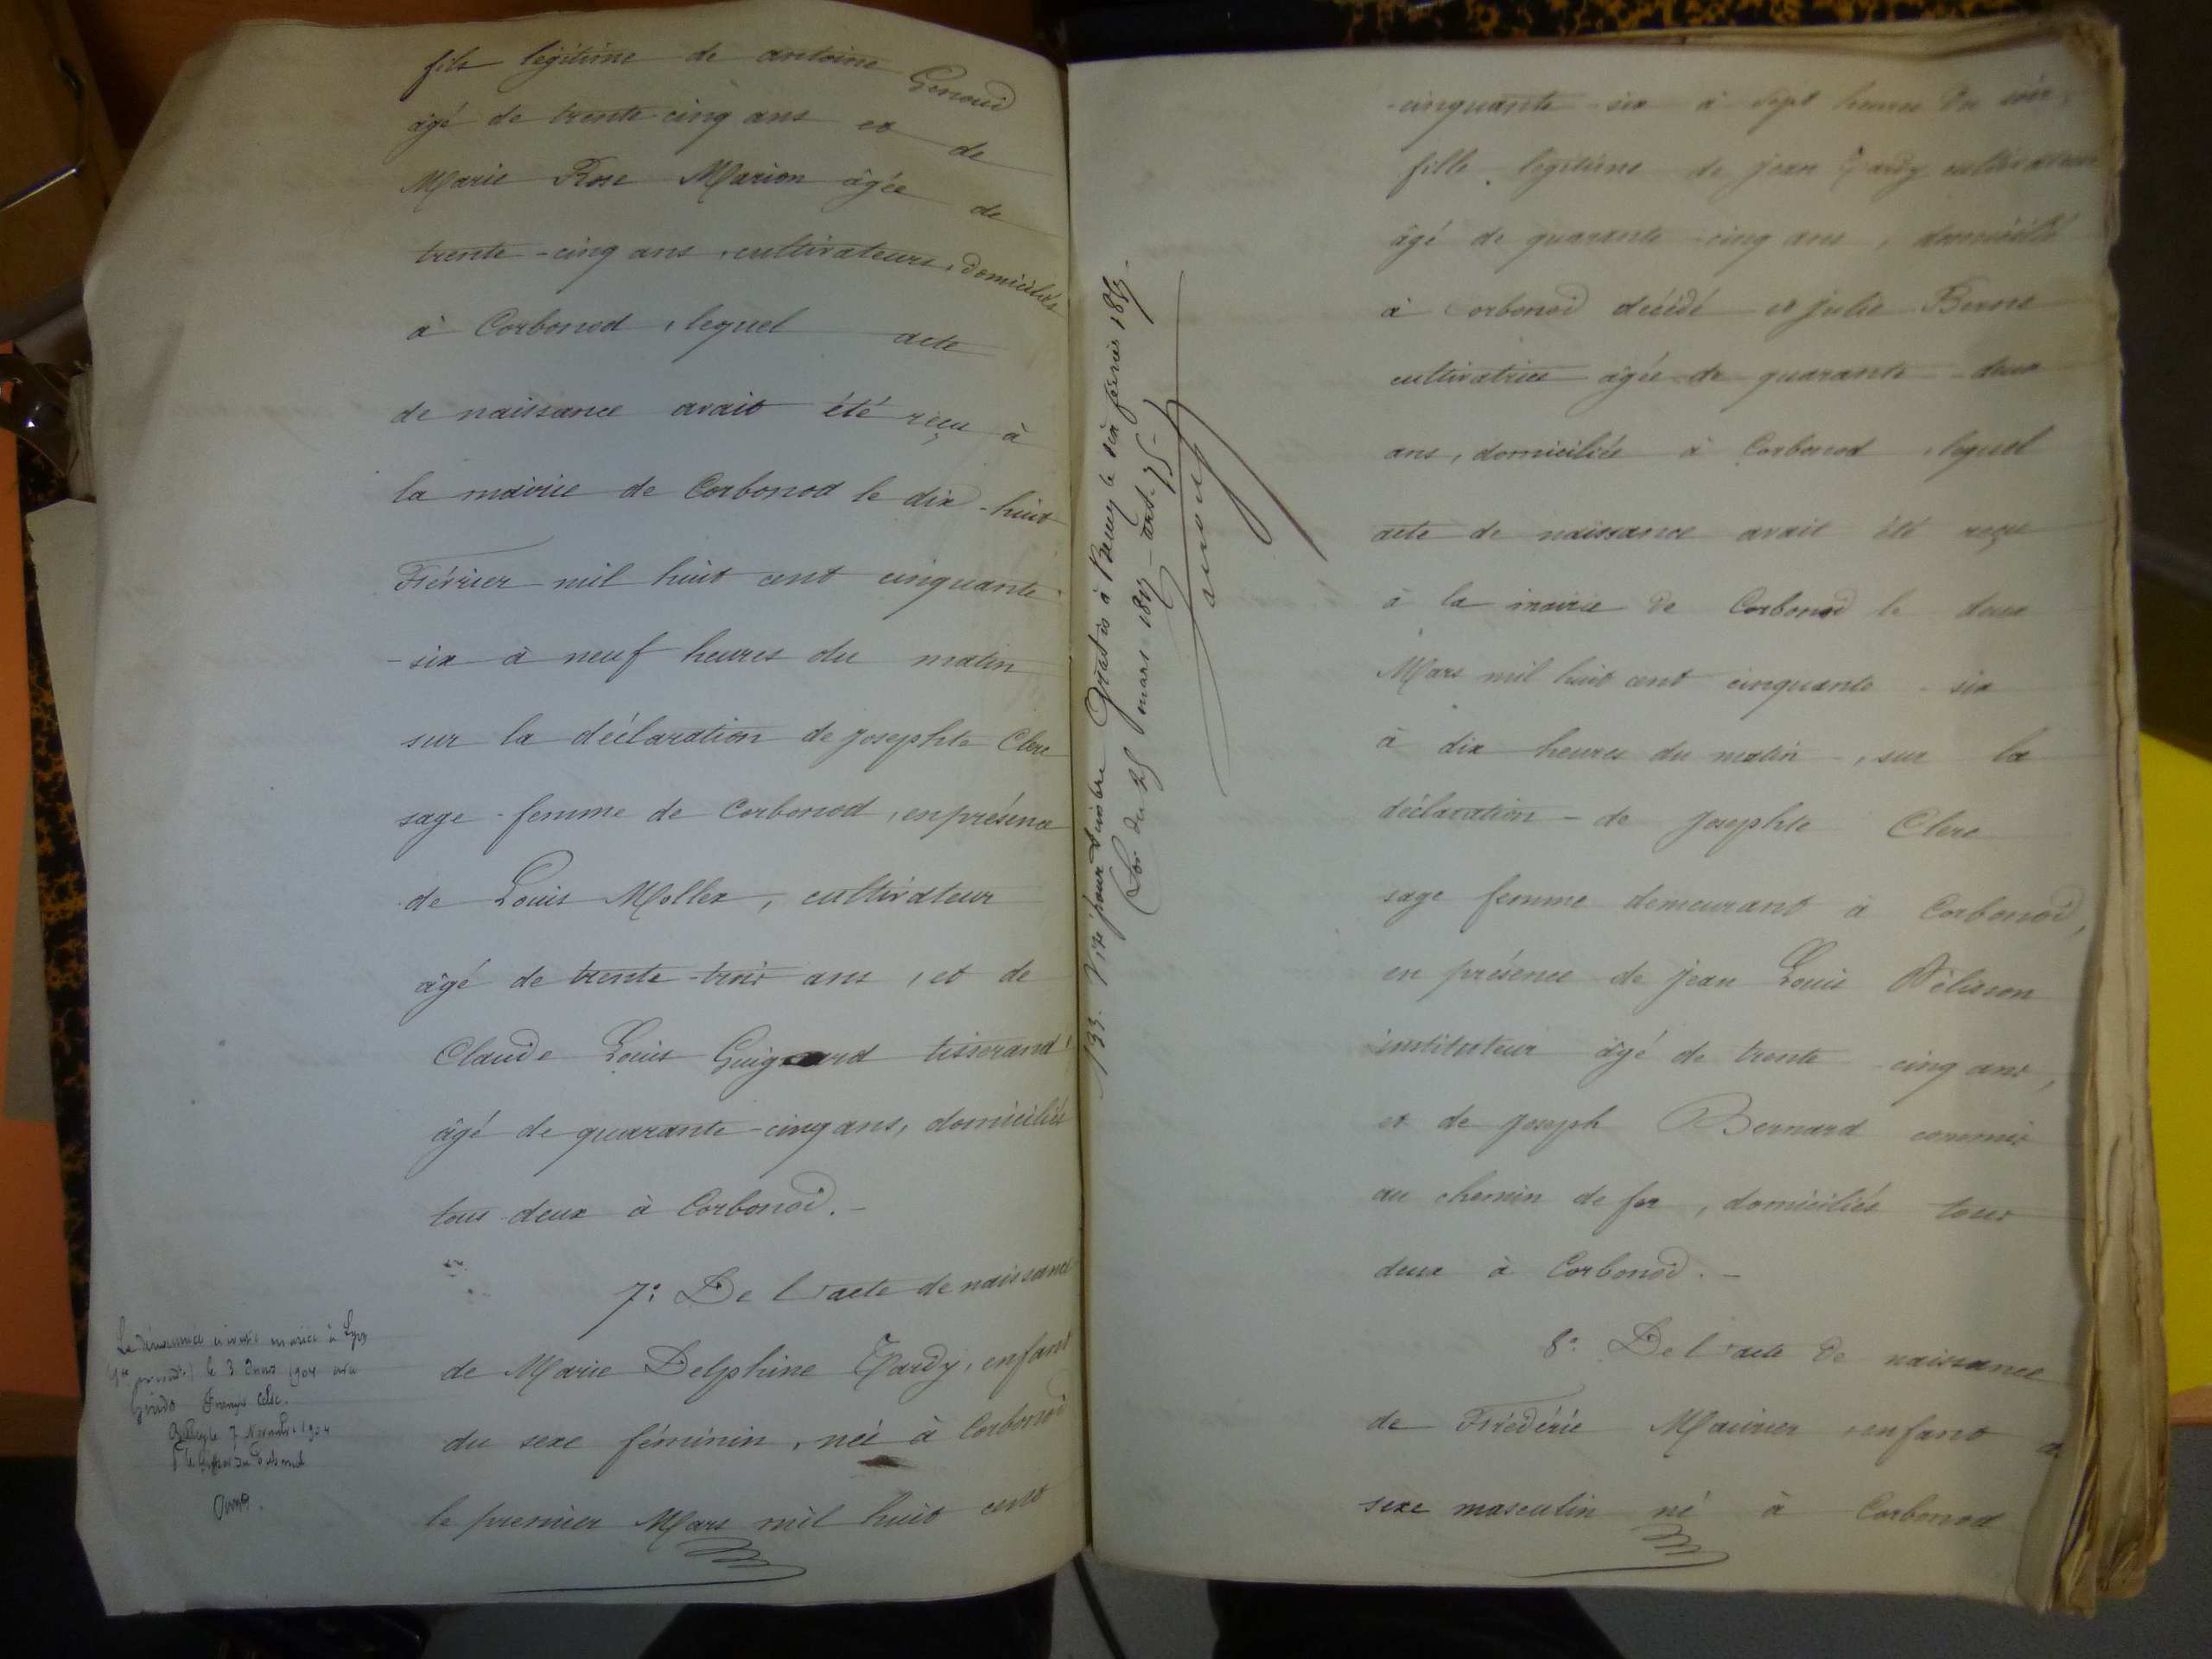 fils légitime de antoine Genoud
âgé de trente cinq ans et de
Marie Rose Marion âgée de
trente-cinq ans, cultivateurs, domiciliés
à Corbonod, lequel acte
de naissance avait été reçu à
la mairie de Corbonod le dix-huit
Février mil huit cent cinquante
-six à neuf heures du matin
sur la déclaration de Josephte Clerc
sage-femme de Corbonod, en présence
de Louis Mollex, cultivateur
âgé de trente-trois ans, et de
Claude Louis Guignard tisserand,
âgé de quarante-cinq ans, domiciliés
tous deux à Corbonod.-
7.° De l'acte de naissance
de Marie Delphine Tardy, enfant
du sexe féminin, née à Corbonod
le premier Mars mil huit cent
mariée à Lyon
le 3 1904
7 Novembre 1904
133. Visé pour timbre Gratis à
Loi du 25 mars 187 - art. 75-
-cinquante-six à sept heures du soir,
fille légitime de Jean Tardy cultivateur
âgé de quarante-cinq ans, domicilié
à Corbonod décédé et Julie Berne
cultivatrice âgée de quarante-deux
ans, domiciliés à Corbonod, lequel
acte de naissance avait été reçu
à la mairie de Corbonod le deux
Mars mil huit cent cinquante-six
à dix heures du matin-, sur la
déclaration-de Josephte Clerc
sage femme demeurant à Corbonod,
en présence de Jean Louis Pélisson
instituteur âgé de trente-cinq ans,
et de Joseph Bernard commis
au chemin de fer, domiciliés tous
deux à Corbonod.-
8.° De l'acte de naissance
de Frédéric Maurier, enfant
sexe masculin né à Corbonod